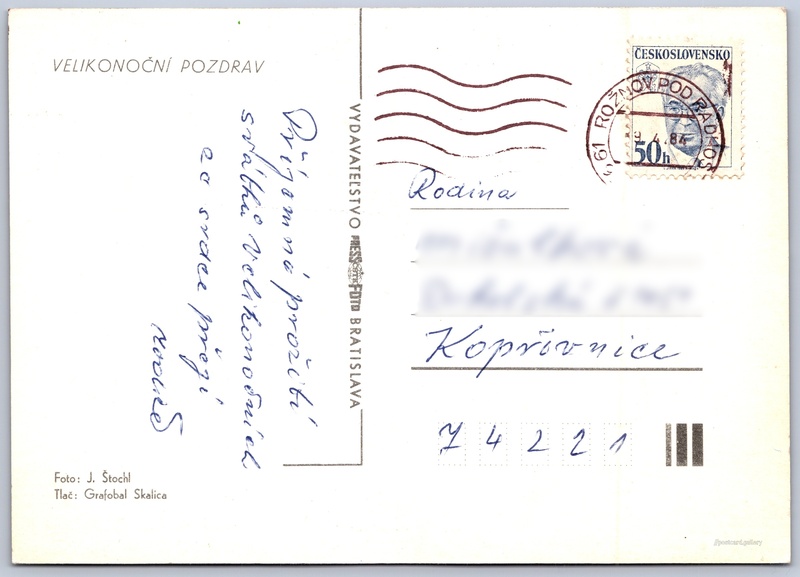 VELIKONOČNÍ POZDRAV
Příjemné prožití
svátků velikonočních
ze srdce přejí
VYDAVATEĽSTVO PRESSFOTO BRATISLAVA
Foto: J. Štochl
Tlač: Grafobal Skalica
ČESKOSLOVENSKO
50h
61 ROŽNOV POD RADHOŠ
9.4.84
Rodina
Kopřivnice
74221
@postcard.gallery